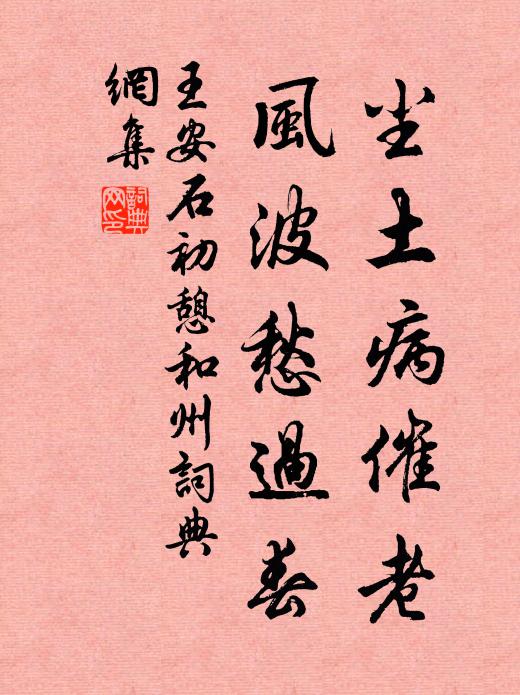 尘土病催老
風波愁過春
王安石初憩和州詞典
網集
詞典网印